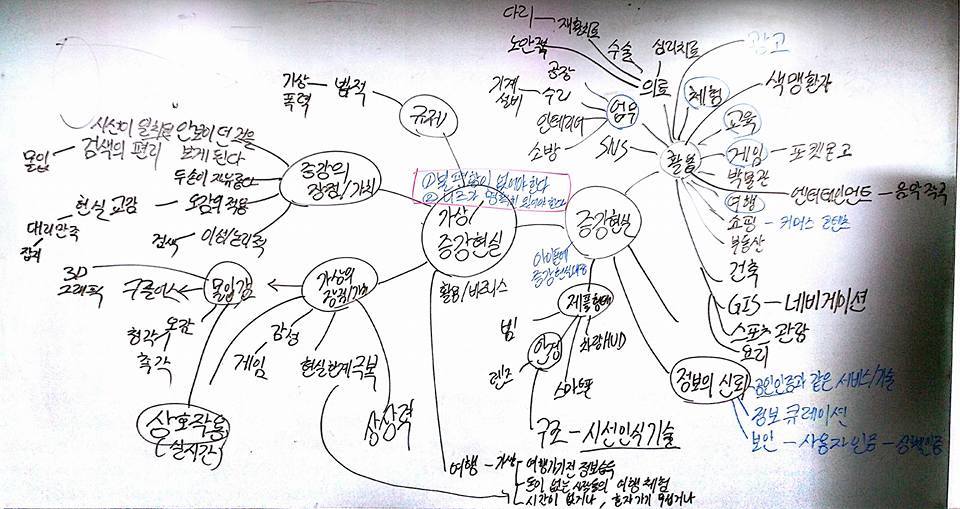 다리 재활치료
노안극복
수술 심리치료
광고
의료
공장
기계 설비
수리
인테리어
소방
업무
체험
색맹환자
교육
SNS
활용
게임 포켓몬고
박물관
엔터테인먼트 음악 작곡
여행
쇼핑 - 커머스 콘텐츠
부동산
건축
GIS - 네비게이션
스포츠 관람
요리
가상 폭력
법적
규제
몰입
검색의 편리
보게 된다
증강의 장점/가치
현실 교감
오감의 적용
대리만족
검색
가상/증강현실
증강현실
활용/비즈니스
아이폰에
제품형태
빔
안경
렌즈
차량HUD
스마트폰
구조 - 시선인식기술
3D 그래픽
몰입감
가상의 장점/가치
청각
오감
촉각
게임
감성
현실한계극복
상상력
상호작용
(실시간)
정보의 신뢰
공인인증과 같은 서비스/기술
정보 큐레이션
보안 - 사용자 인증
여행 - 가상
여행가기전 정보습득
돈이 없는 사람들의 여행 체험
시간이 없거나, 혼자가기 무섭거나